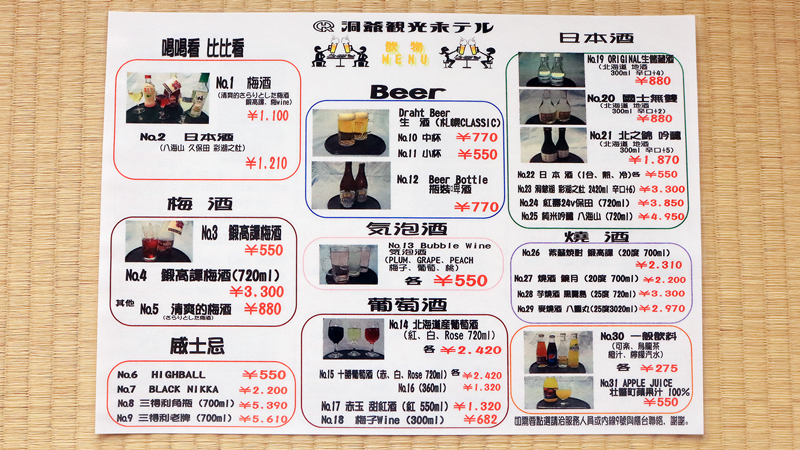 洞爺観光ホテル
飲物
MENU
喝喝看 比比看
No.1 梅酒
(清爽的さらりとした梅酒
鍛高譚、梅wine)
¥1.100
No.2 日本酒
(八海山 久保田 彭湖之灶)
¥1.210
梅酒
No.3 鍛高譚梅酒
¥550
No.4 鍛高譚梅酒(720ml)
¥3.300
其他
No.5 清爽的梅酒 ¥880
(さらりとした梅酒)
威士忌
No.6 HIGHBALL ¥550
No.7 BLACK NIKKA ¥2.200
No.8 三得利角瓶(700ml) ¥5.390
No.9 三得利老牌(700ml) ¥5.610
Beer
Draht Beer
生 酒(札幌CLASSIC)
No.10 中杯 ¥770
No.11 小杯 ¥550
No.12 Beer Bottle
瓶裝啤酒
¥770
気泡酒
No.13 Bubble Wine
気泡酒
(PLUM, GRAPE, PEACH
梅子、葡萄、桃)
各 ¥550
葡萄酒
No.14 北海道産葡萄酒
(紅、白、Rose 720ml)
各 ¥2.420
No.15 十勝葡萄酒(赤、白、Rose 720ml) 各 ¥2.420
No.16 (360ml) ¥1.320
No.17 赤玉 甜紅酒(紅 550ml) ¥1.320
No.18 梅子Wine(300ml) ¥682
日本酒
No.19 ORIGINAL生貯蔵酒
(北海道 地酒
300ml 辛口+4)
¥880
No.20 國士無雙
(北海道 地酒
300ml 辛口+2)
¥880
No.21 北之錦 吟醸
(北海道 地酒
300ml 辛口+5)
¥1.870
No.22 日本酒(1合、熱、冷) 各 ¥550
No.23 洞爺湖 彭湖之灶 2420ml 辛口+4) ¥3.300
No.24 紅壽24v保田(720ml) ¥3.850
No.25 純米吟醸 八海山(720ml) ¥4.950
燒酒
No.26 紫蘇焼酎 鍛高譚(20度 700ml)
¥2.310
No.27 燒酒 鏡月(20度 700ml) ¥2.200
No.28 芋燒酒 黒霧島(25度 720ml) ¥3.300
No.29 麥燒酒 八重丸(25度3020ml) ¥2.970
No.30 一般飲料
(可楽、烏龍茶
橙汁、檸檬汽水)
各 ¥275
No.31 APPLE JUICE
壮瞥町蘋果汁 100%
¥550
如需要點選請洽服務人員或內線9號與櫃台聯絡、謝謝。